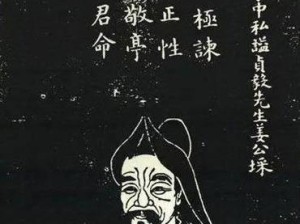 中私謚貞毅先生姜公埰
極諫
正性
敬亭
君命